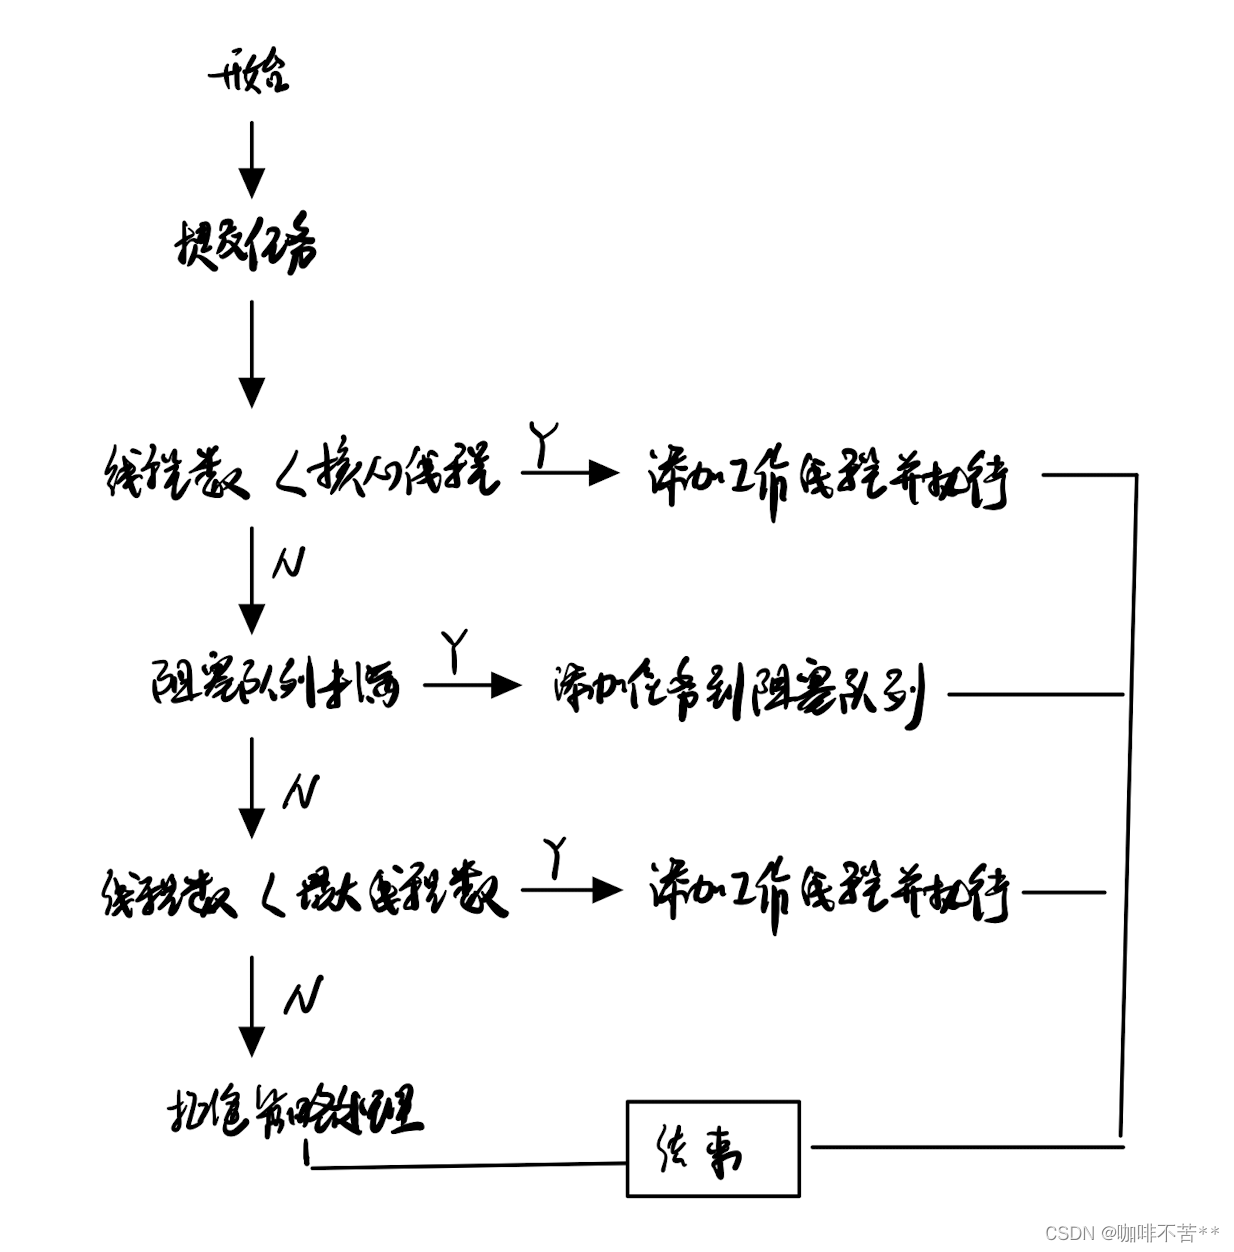 开始
提交任务
线程数 < 核心线程
Y
添加工作线程并执行
N
阻塞队列未满
Y
添加任务到阻塞队列
N
线程数 < 最大线程数
Y
添加工作线程并执行
N
拒绝策略处理
结束
CSDN @咖啡不苦**